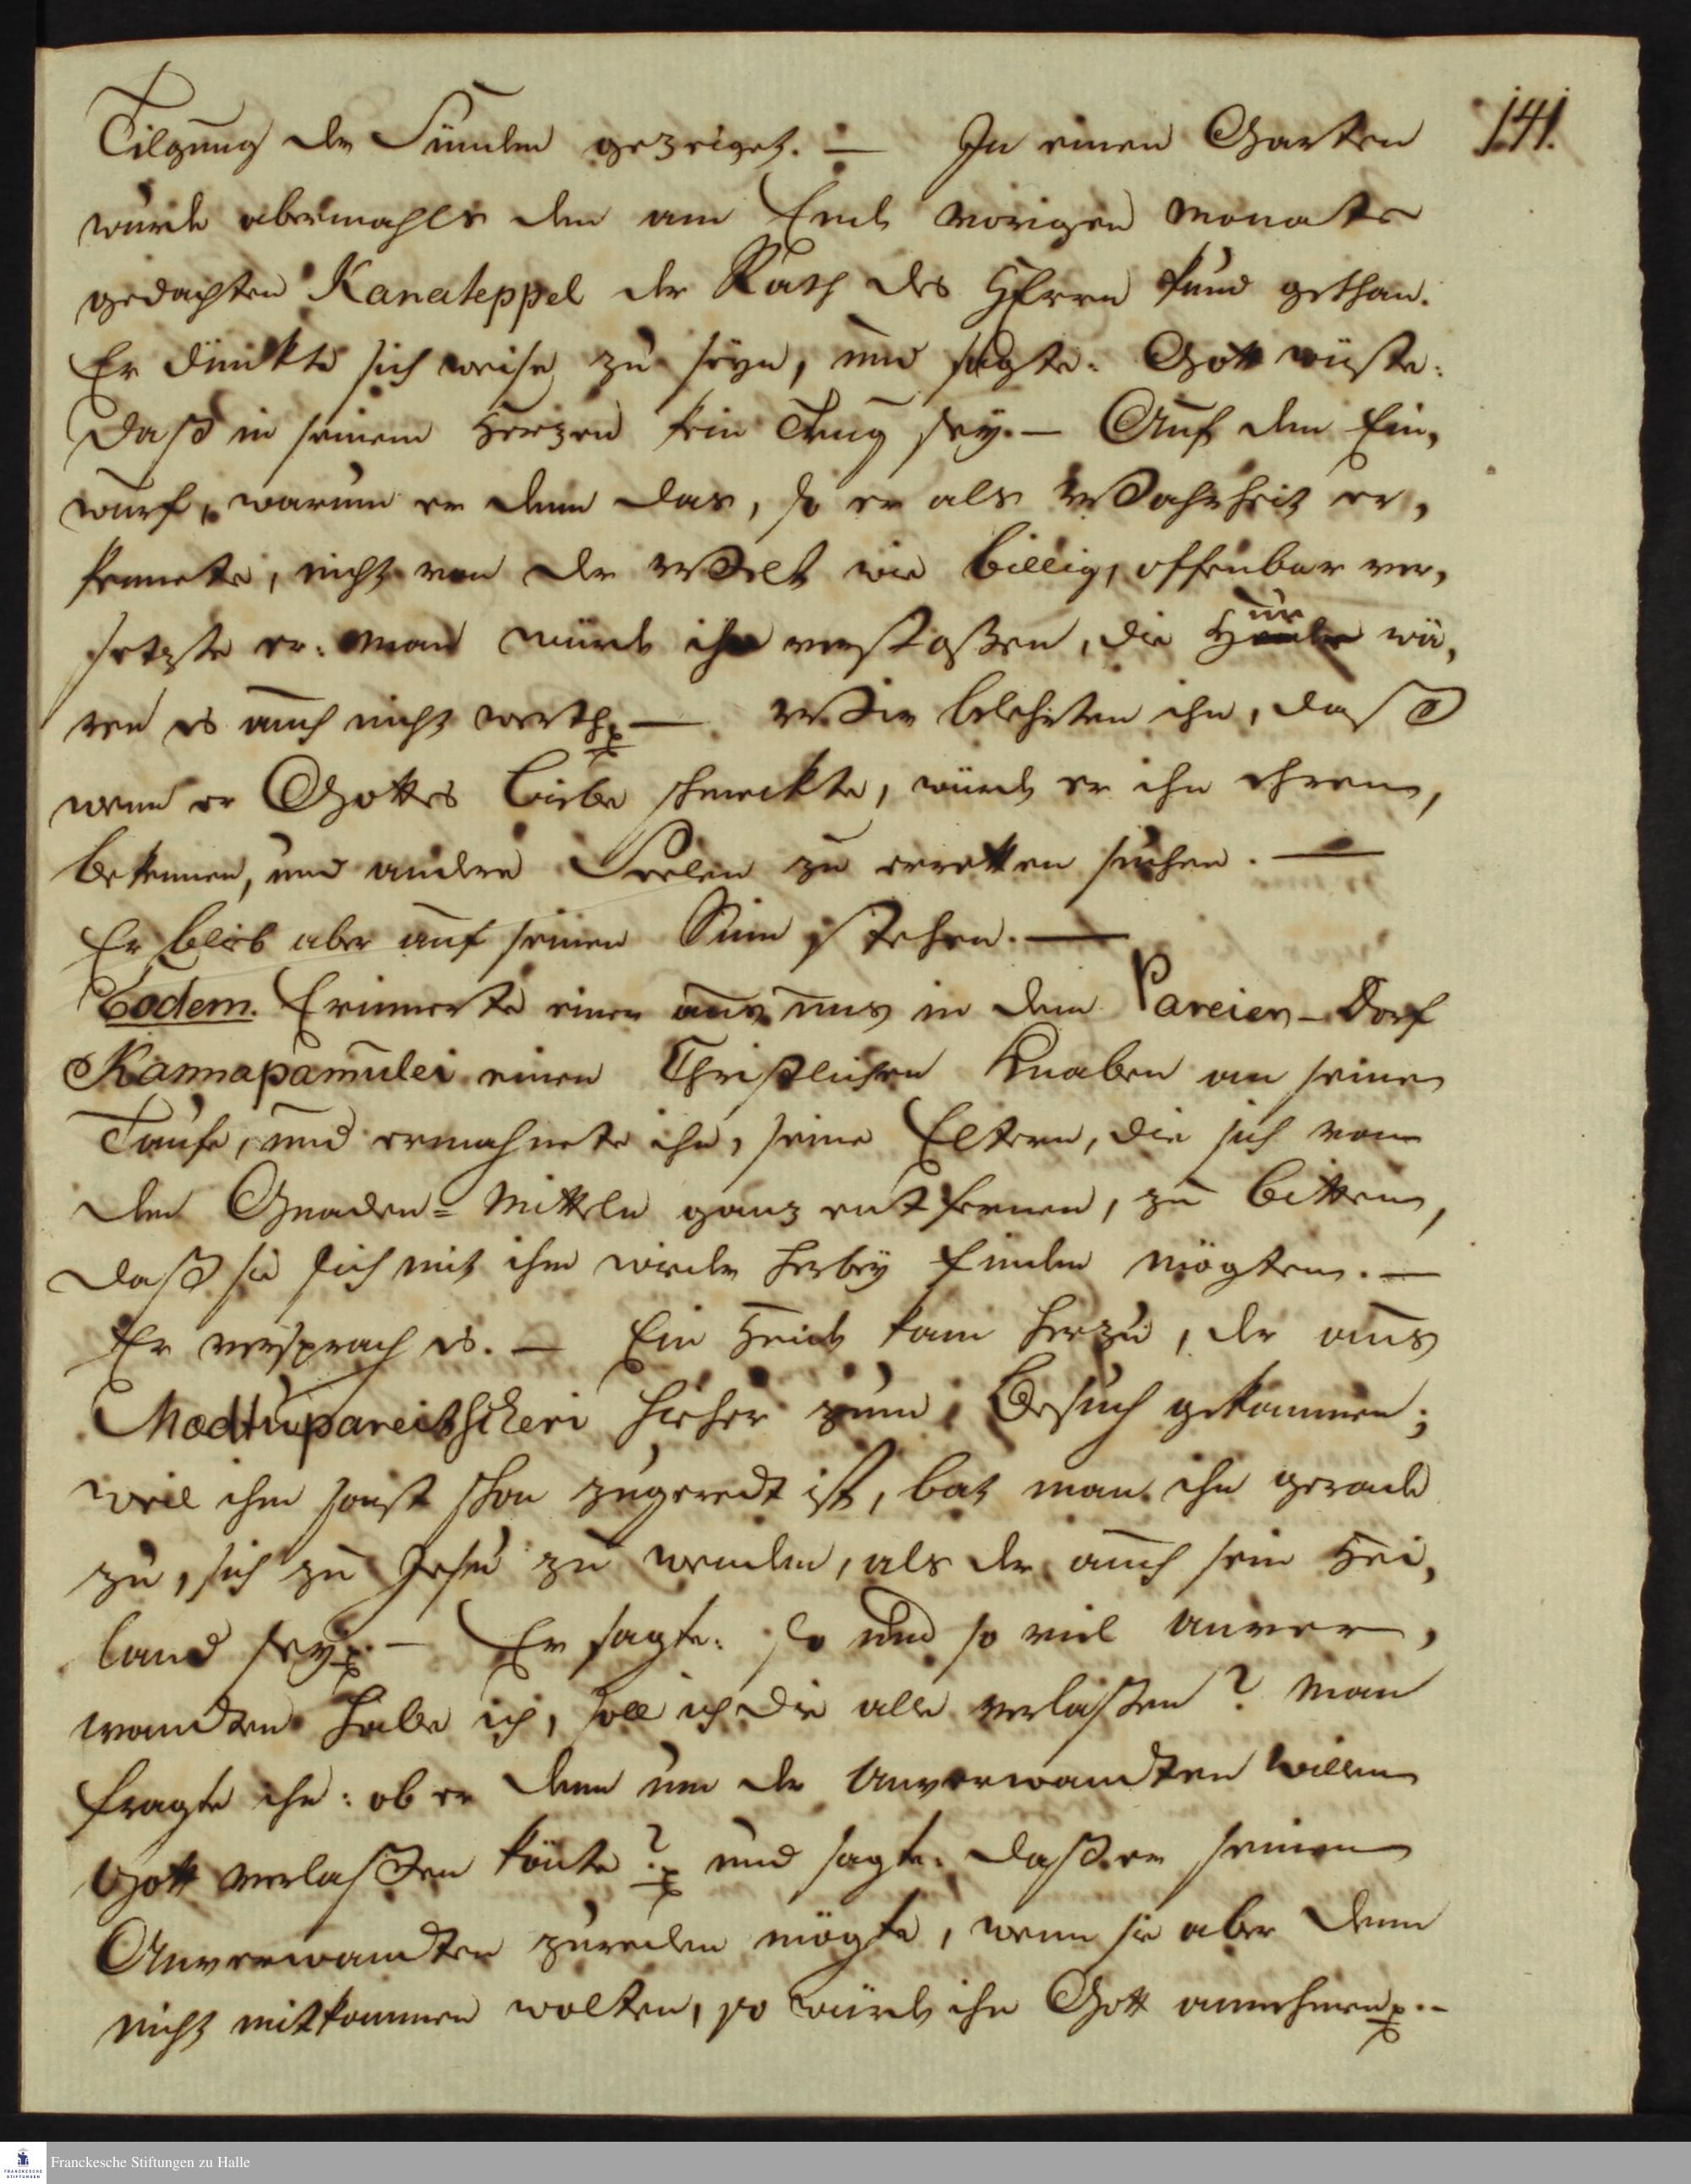 141.
Tilgung der Sünden gezeiget. — In einen Garten
wurde abermahls den am Ende vorigen Monats
gedachten Kanateppel der Rath des HErrn kund gethan.
Er dünkte sich weise zu seyn, und sagte: Gott wüste:
daß in seinem Herzen kein Trug sey. — Auf den Ein,
wurf, warum er denn das, so er als Wahrheit er,
kennete, nicht von der Welt wie billig, offenbar ver,
setzte er: man würde ihn verstoßen, die wä,
ren es auch nicht werth — Wir belehrten ihn, daß
wenn er Gottes Liebe schmeckte, würde er ihn ehren,
bekennen, und andere Seelen zu erretten suchen. —
Er blieb aber auf seinen Sinn stehen. —
Eodem. Erinnerte einer aus uns in dem Pareier-Dorf
Kannapamulei einen Christlichen Knaben an seine
Taufe, und ermahnete ihn, seine Eltern, die sich von
den Gnaden-Mitteln ganz entfernen, zu bitten,
daß sie sich mit ihm wieder herbey finden mögten. —
Er versprach es. — Ein Heide kam herzu, der aus
Madtupareitscheri hieher zum Besuch gekommen;
weil ihm sonst schon zugeredt ist, bat man ihn gerade
zu, sich zu Jesu zu wenden, als der auch sein Hei,
land sey. — Er sagte: so und so viel Anver,
wandten habe ich, soll ich die alle verlaßen? Man
fragte ihn: ob er denn um der Anverwandten willen
Gott verlaßen könte? und sagte: daß er seinen
Anverwandten zureden mögte, wenn sie aber denn
nicht mitkommen wolten, so würde ihn Gott annehmen. —
Franckesche Stiftungen zu Halle
FRANCKESCHE
STIFTUNGEN